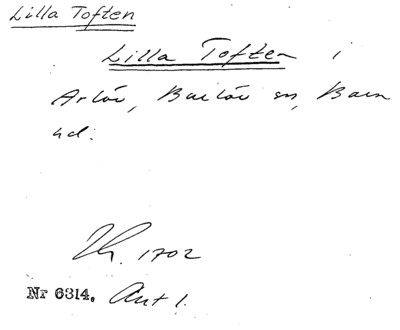 Lilla Toften
Lilla Toften i
Arlöv, Burlöv sn, Bara
hd.
Kr. 1702
Nr 6314. Ant 1.